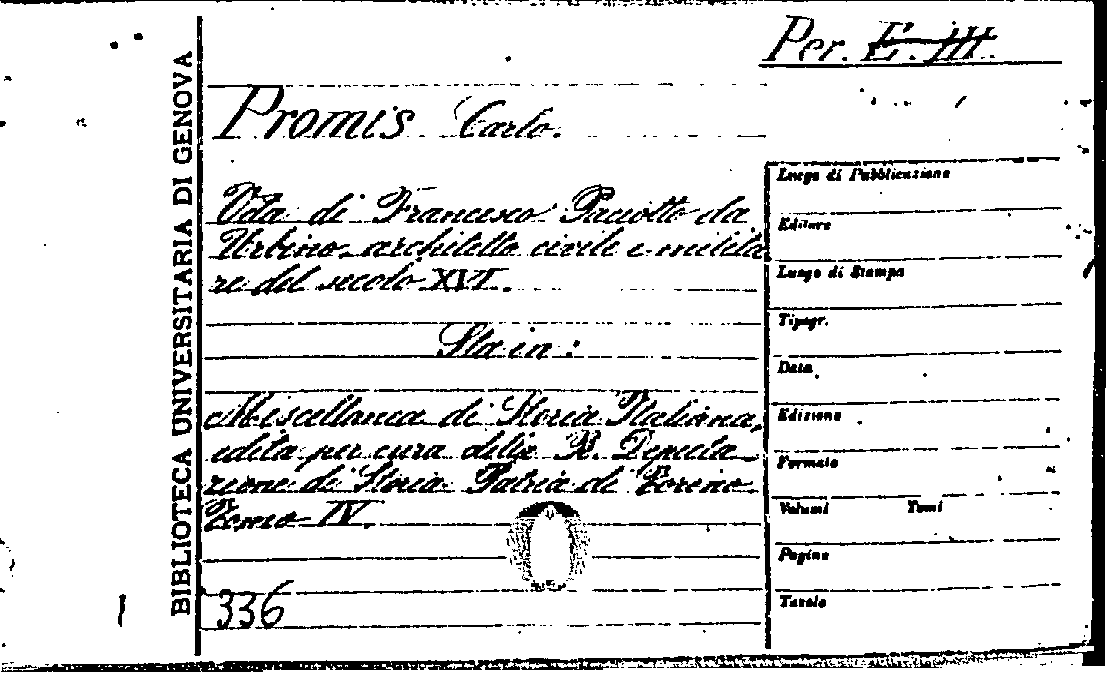 Per. E. III.
BIBLIOTECA UNIVERSITARIA DI GENOVA
Promis Carlo.
Vita di Francesco Paciotto da
Urbino, architetto civile e milita
re del secolo XVI.
Sta in:
Miscellanea di Storia Italiana,
edita per cura della R. Deputa_
zione di Storia Patria di Torino
Tomo IV.
336
Luogo di Pubblicazione
Editore
Luogo di Stampa
Tipogr.
Data
Edizione
Formato
Volumi Tomi
Pagine
Tavole